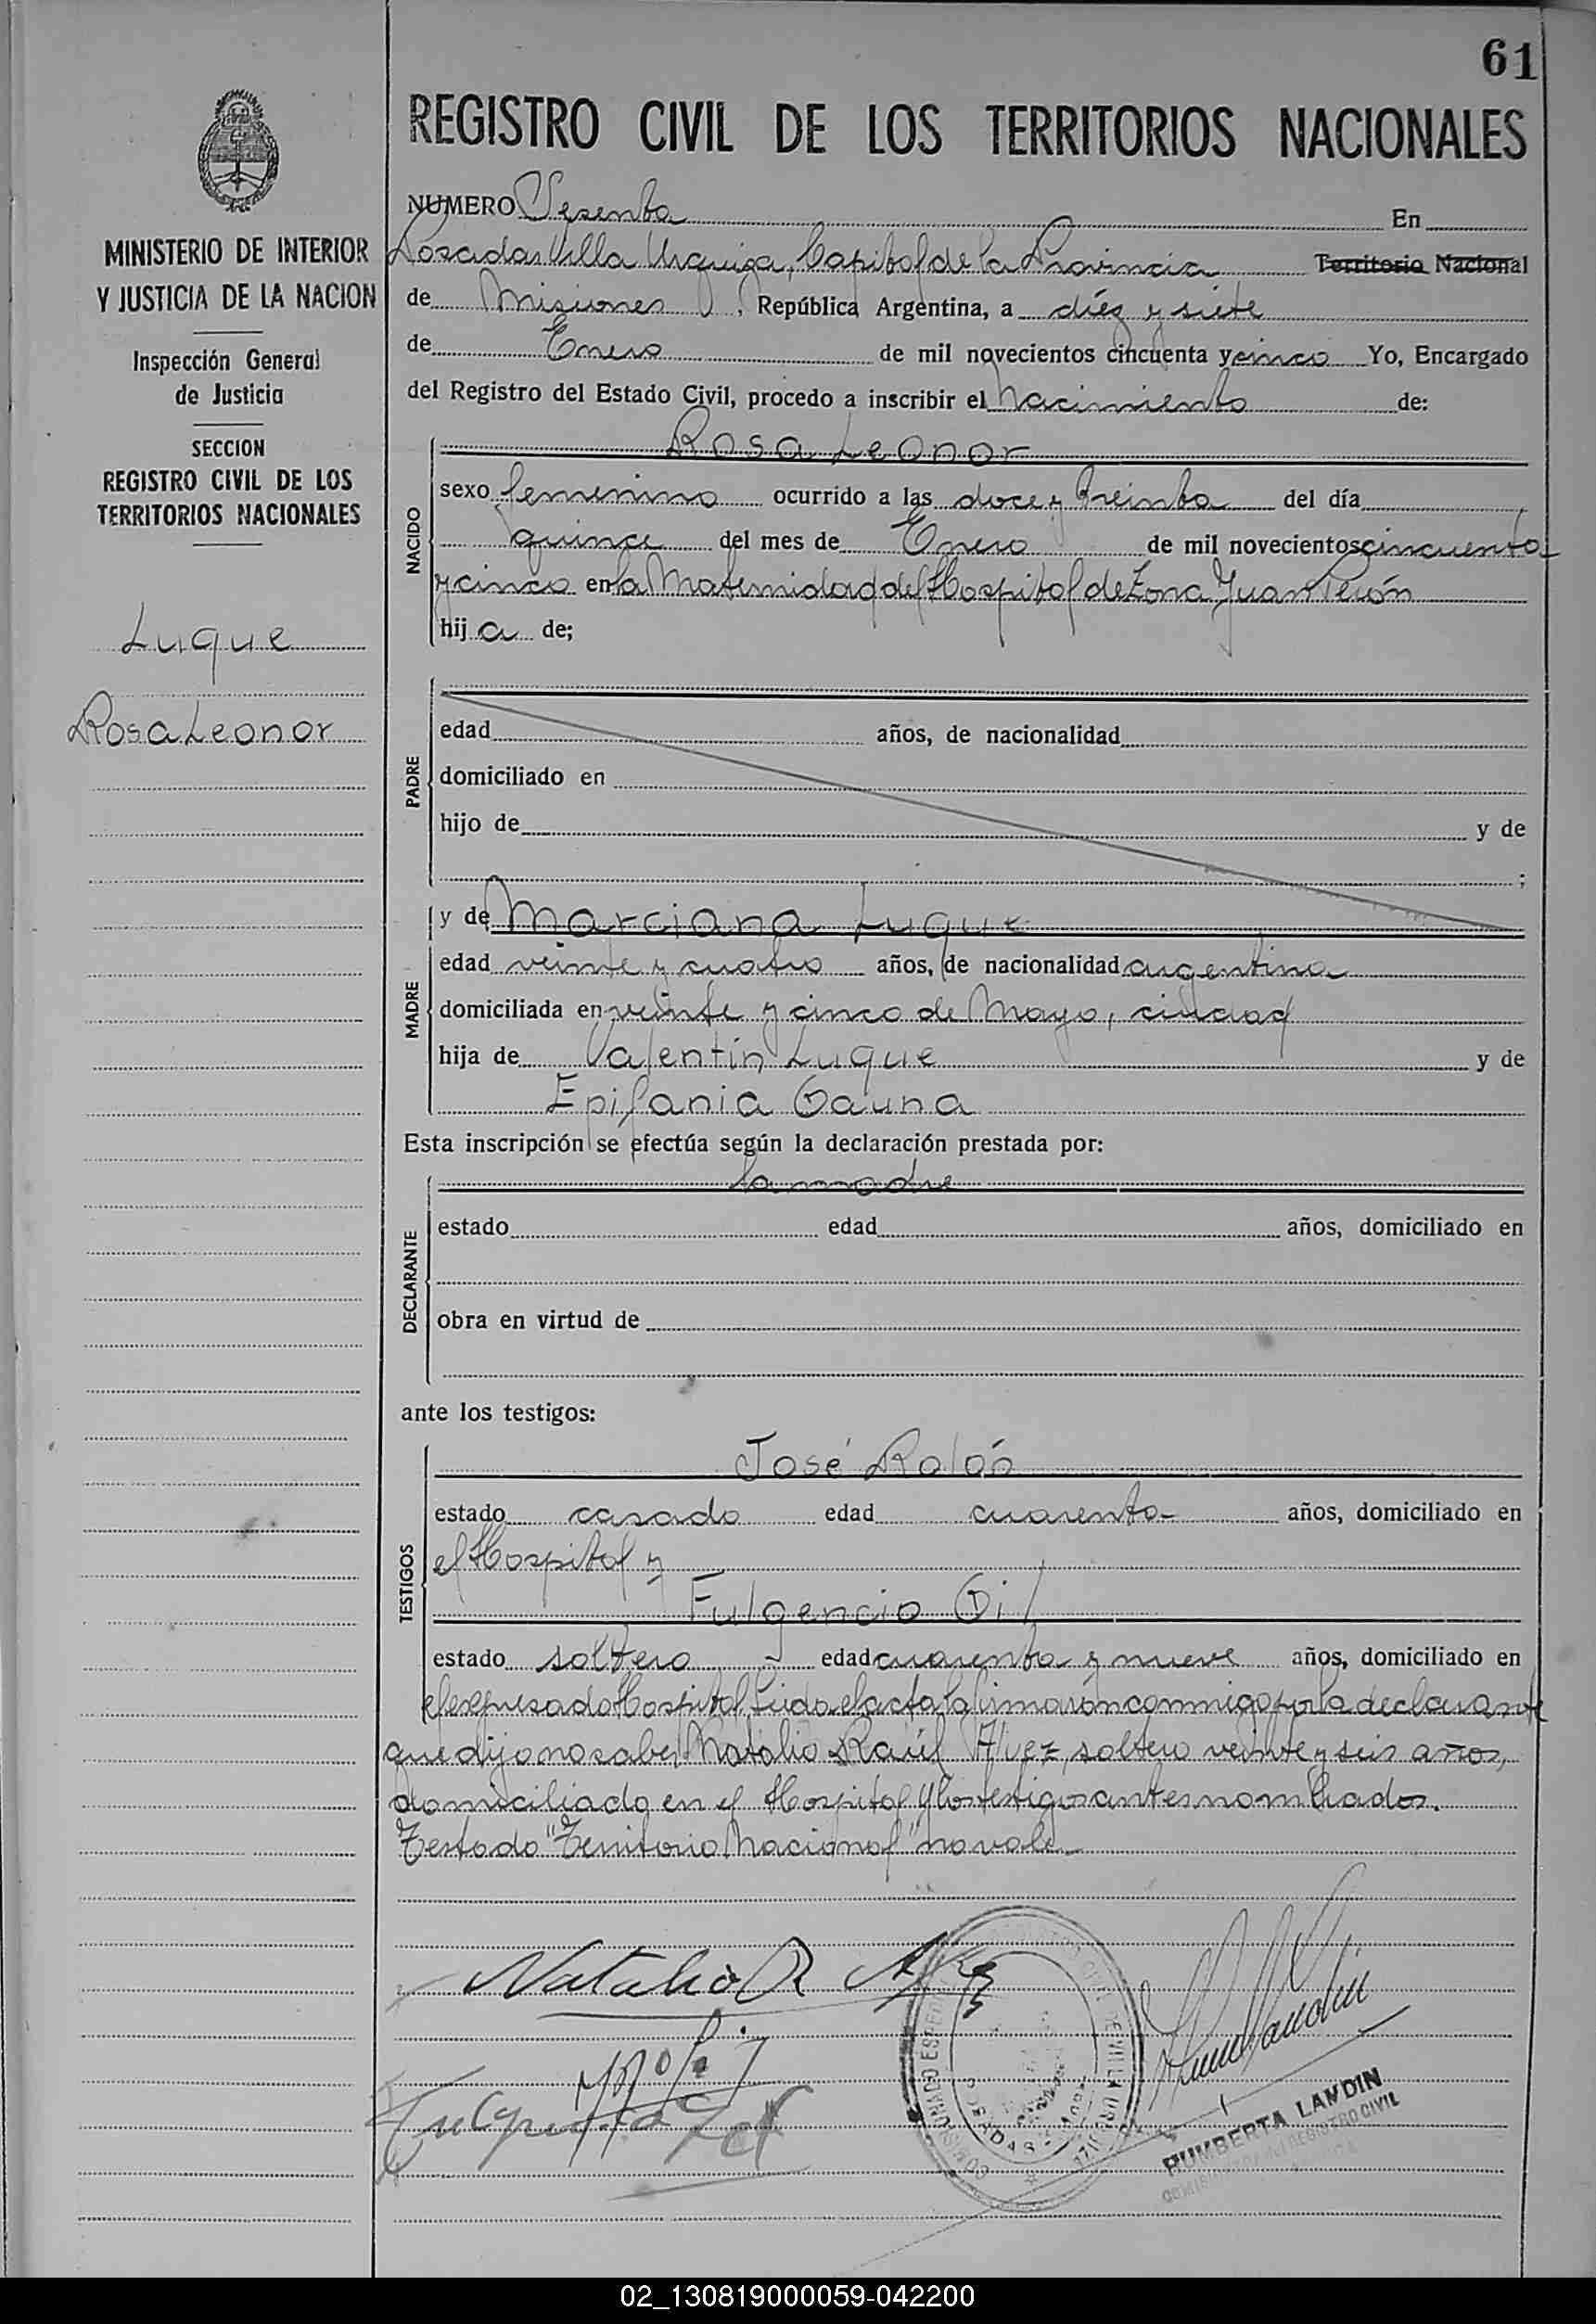 61
REGISTRO CIVIL DE LOS TERRITORIOS NACIONALES
MINISTERIO DE INTERIOR
Y JUSTICIA DE LA NACION
Inspección General
de Justicia
SECCION
REGISTRO CIVIL DE LOS
TERRITORIOS NACIONALES
Luque
Rosa Leonor
NUMERO Sesenta En
Posadas Villa Urquiza, Capital de la Provincia Territorio Nacional
de Misiones, República Argentina, a diéz y siete
de Enero de mil novecientos cincuenta y cinco Yo, Encargado
del Registro del Estado Civil, procedo a inscribir el Nacimiento de:
NACIDO
Rosa Leonor
sexo femenino ocurrido a las doce y treinta del día
quince del mes de Enero de mil novecientos cincuenta
y cinco en la Maternidad del Hospital de Zona Juan Perón
hij a de;
PADRE
edad años, de nacionalidad
domiciliado en
hijo de y de
;
MADRE
y de Marciana Luque
edad veinte y cuatro años, de nacionalidad argentina
domiciliada en veinte y cinco de Mayo, ciudad
hija de Valentín Luque y de
Epifania Gauna
Esta inscripción se efectúa según la declaración prestada por:
DECLARANTE
la madre
estado edad años, domiciliado en
obra en virtud de
ante los testigos:
TESTIGOS
José Rolón
estado casado edad cuarenta años, domiciliado en
el Hospital y
Fulgencio Gil
estado soltero edad cuarenta y nueve años, domiciliado en
el expresado Hospital. Leida el acta la firmarón conmigo por la declarante
que dijo no saber Natalio Raúl Alvez, soltero veinte y seis años,
domiciliado en el Hospital y los testigos antes nombrados.
Testado "Territorio Nacional" no vale.
Natalio R
HUMBERTA LANDIN
REGISTRO CIVIL
POSADAS
02_130819000059-042200